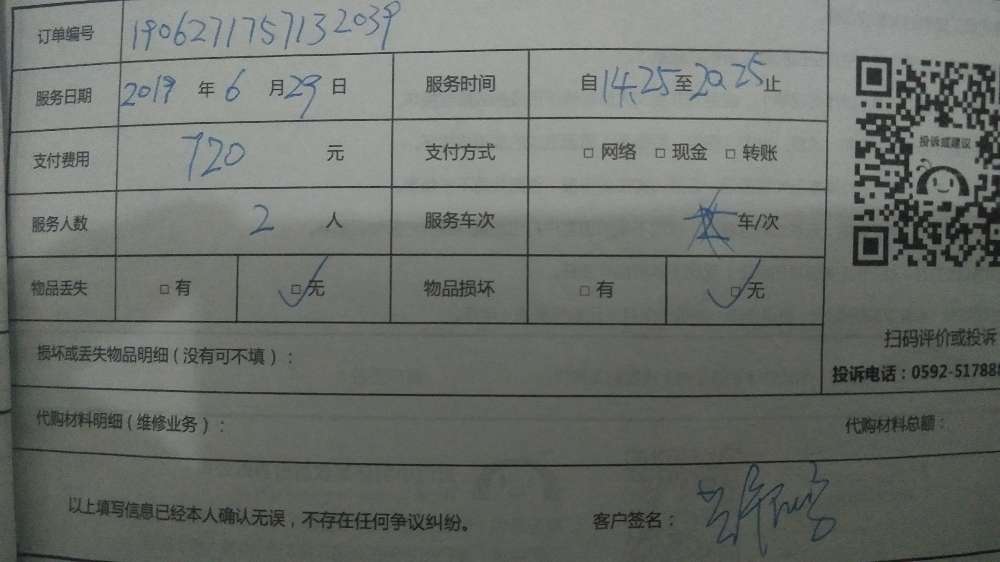 订单编号 190627175713 2039
服务日期 2019 年 6 月 29 日 服务时间 自 14.25 至 20.25 止
支付费用 720 元 支付方式 □ 网络 □ 现金 □ 转账
投诉或建议
服务人数 2 人 服务车次 车/次
物品丢失 □ 有 □ 无 物品损坏 □ 有 □ 无
扫码评价或投诉
损坏或丢失物品明细（没有可不填）：
投诉电话：0592-517888
代购材料明细（维修业务）： 代购材料总额：
以上填写信息已经本人确认无误，不存在任何争议纠纷。 客户签名：